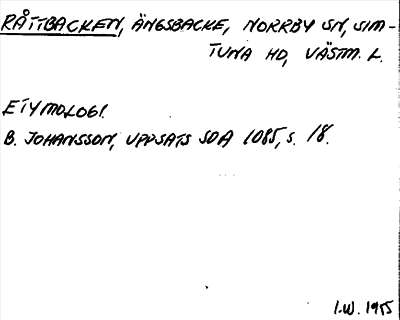 RÅTTBACKEN, ÄNGSBACKE, NORRBY SN, SIM-
TUNA HD, VÄSTM. L.
ETYMOLOGI.
B. JOHANSSON, UPPSATS SOA 1085, S. 18.
I.W. 1955